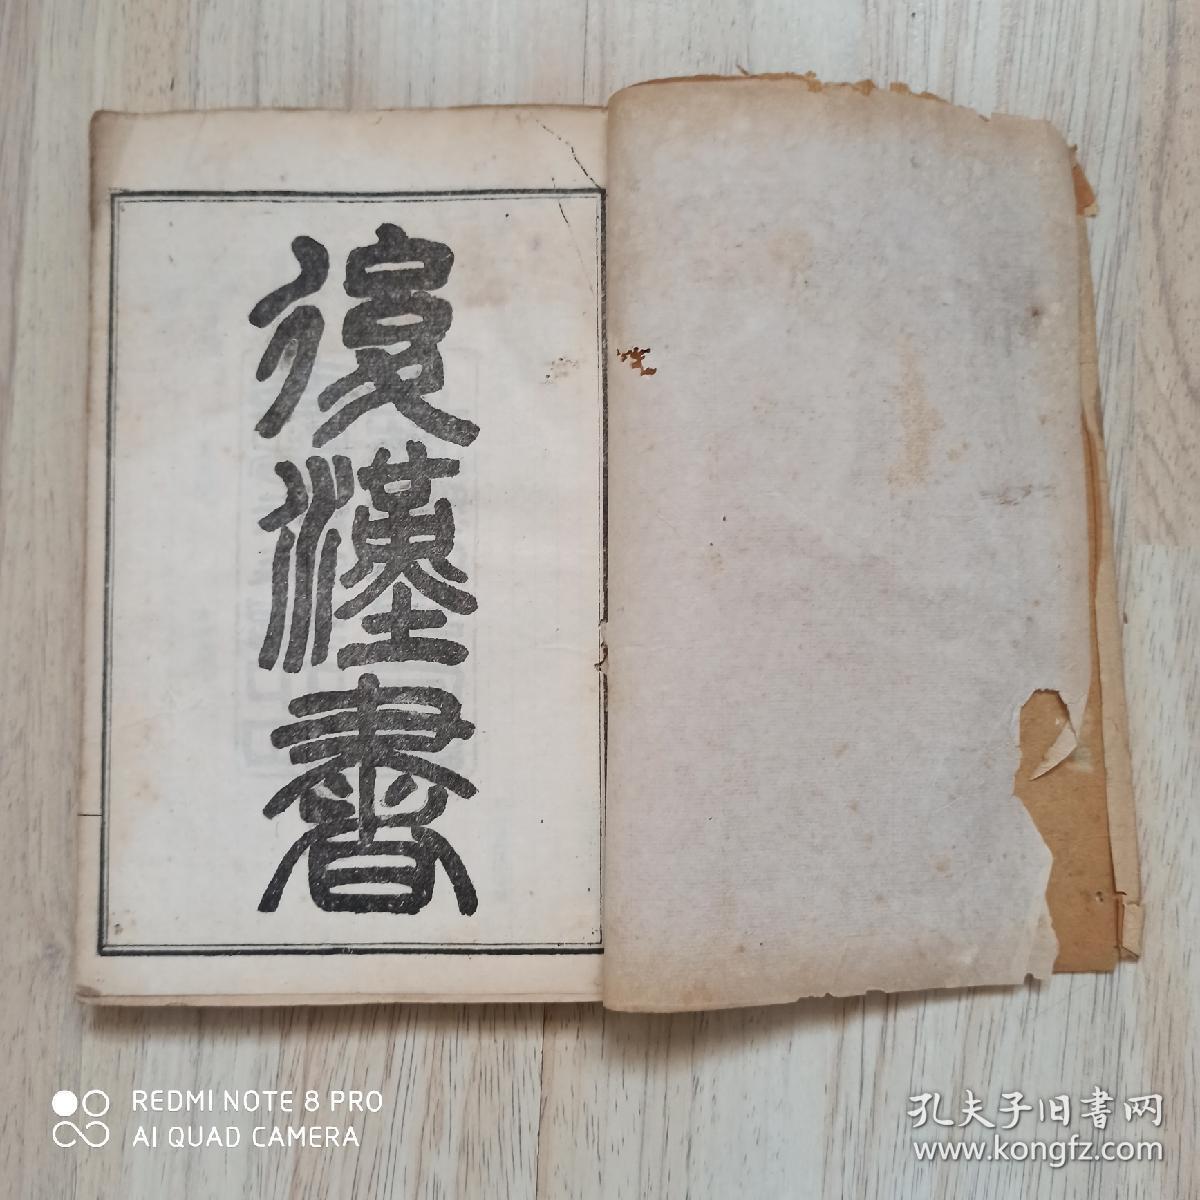 後漢書
REDMI NOTE 8 PRO
AI QUAD CAMERA
孔夫子旧書网
www.kongfz.com